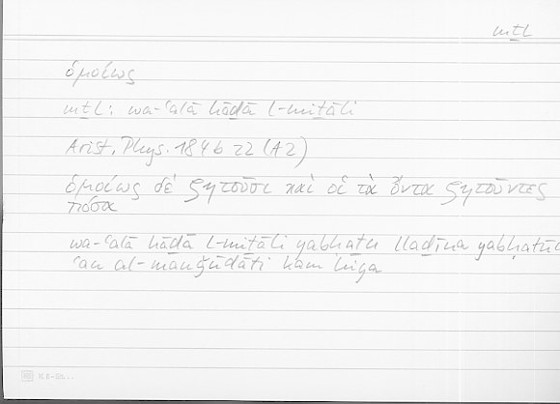 mṯl
ὁμοίως
mṯl: wa-ʿalā hāḏā l-miṯāli
Arist. Phys. 184b22 (A2)
ὁμοίως δὲ ζητοῦσι καὶ οἱ τὰ ὄντα ζητοῦντες
πόσα
wa-ʿalā hāḏā l-miṯāli yabḥaṯu llaḏīna yabḥaṯūn
ʿan al-mauǧūdāti kam hiya